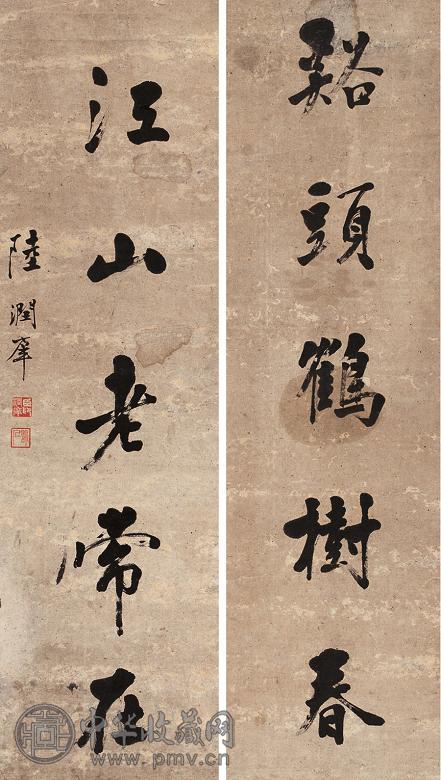 谿頭鶴樹春
江山老常在
陸潤庠
中华收藏网
www.pmv.cn